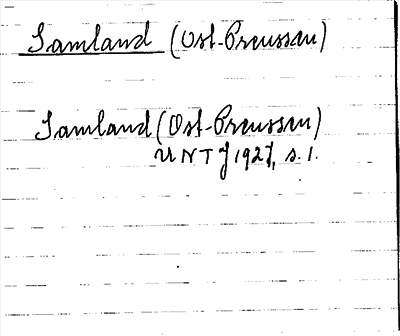 Samland (Ost-Preussen)
Samland (Ost-Preussen)
UNTJ 1927, s. 1.